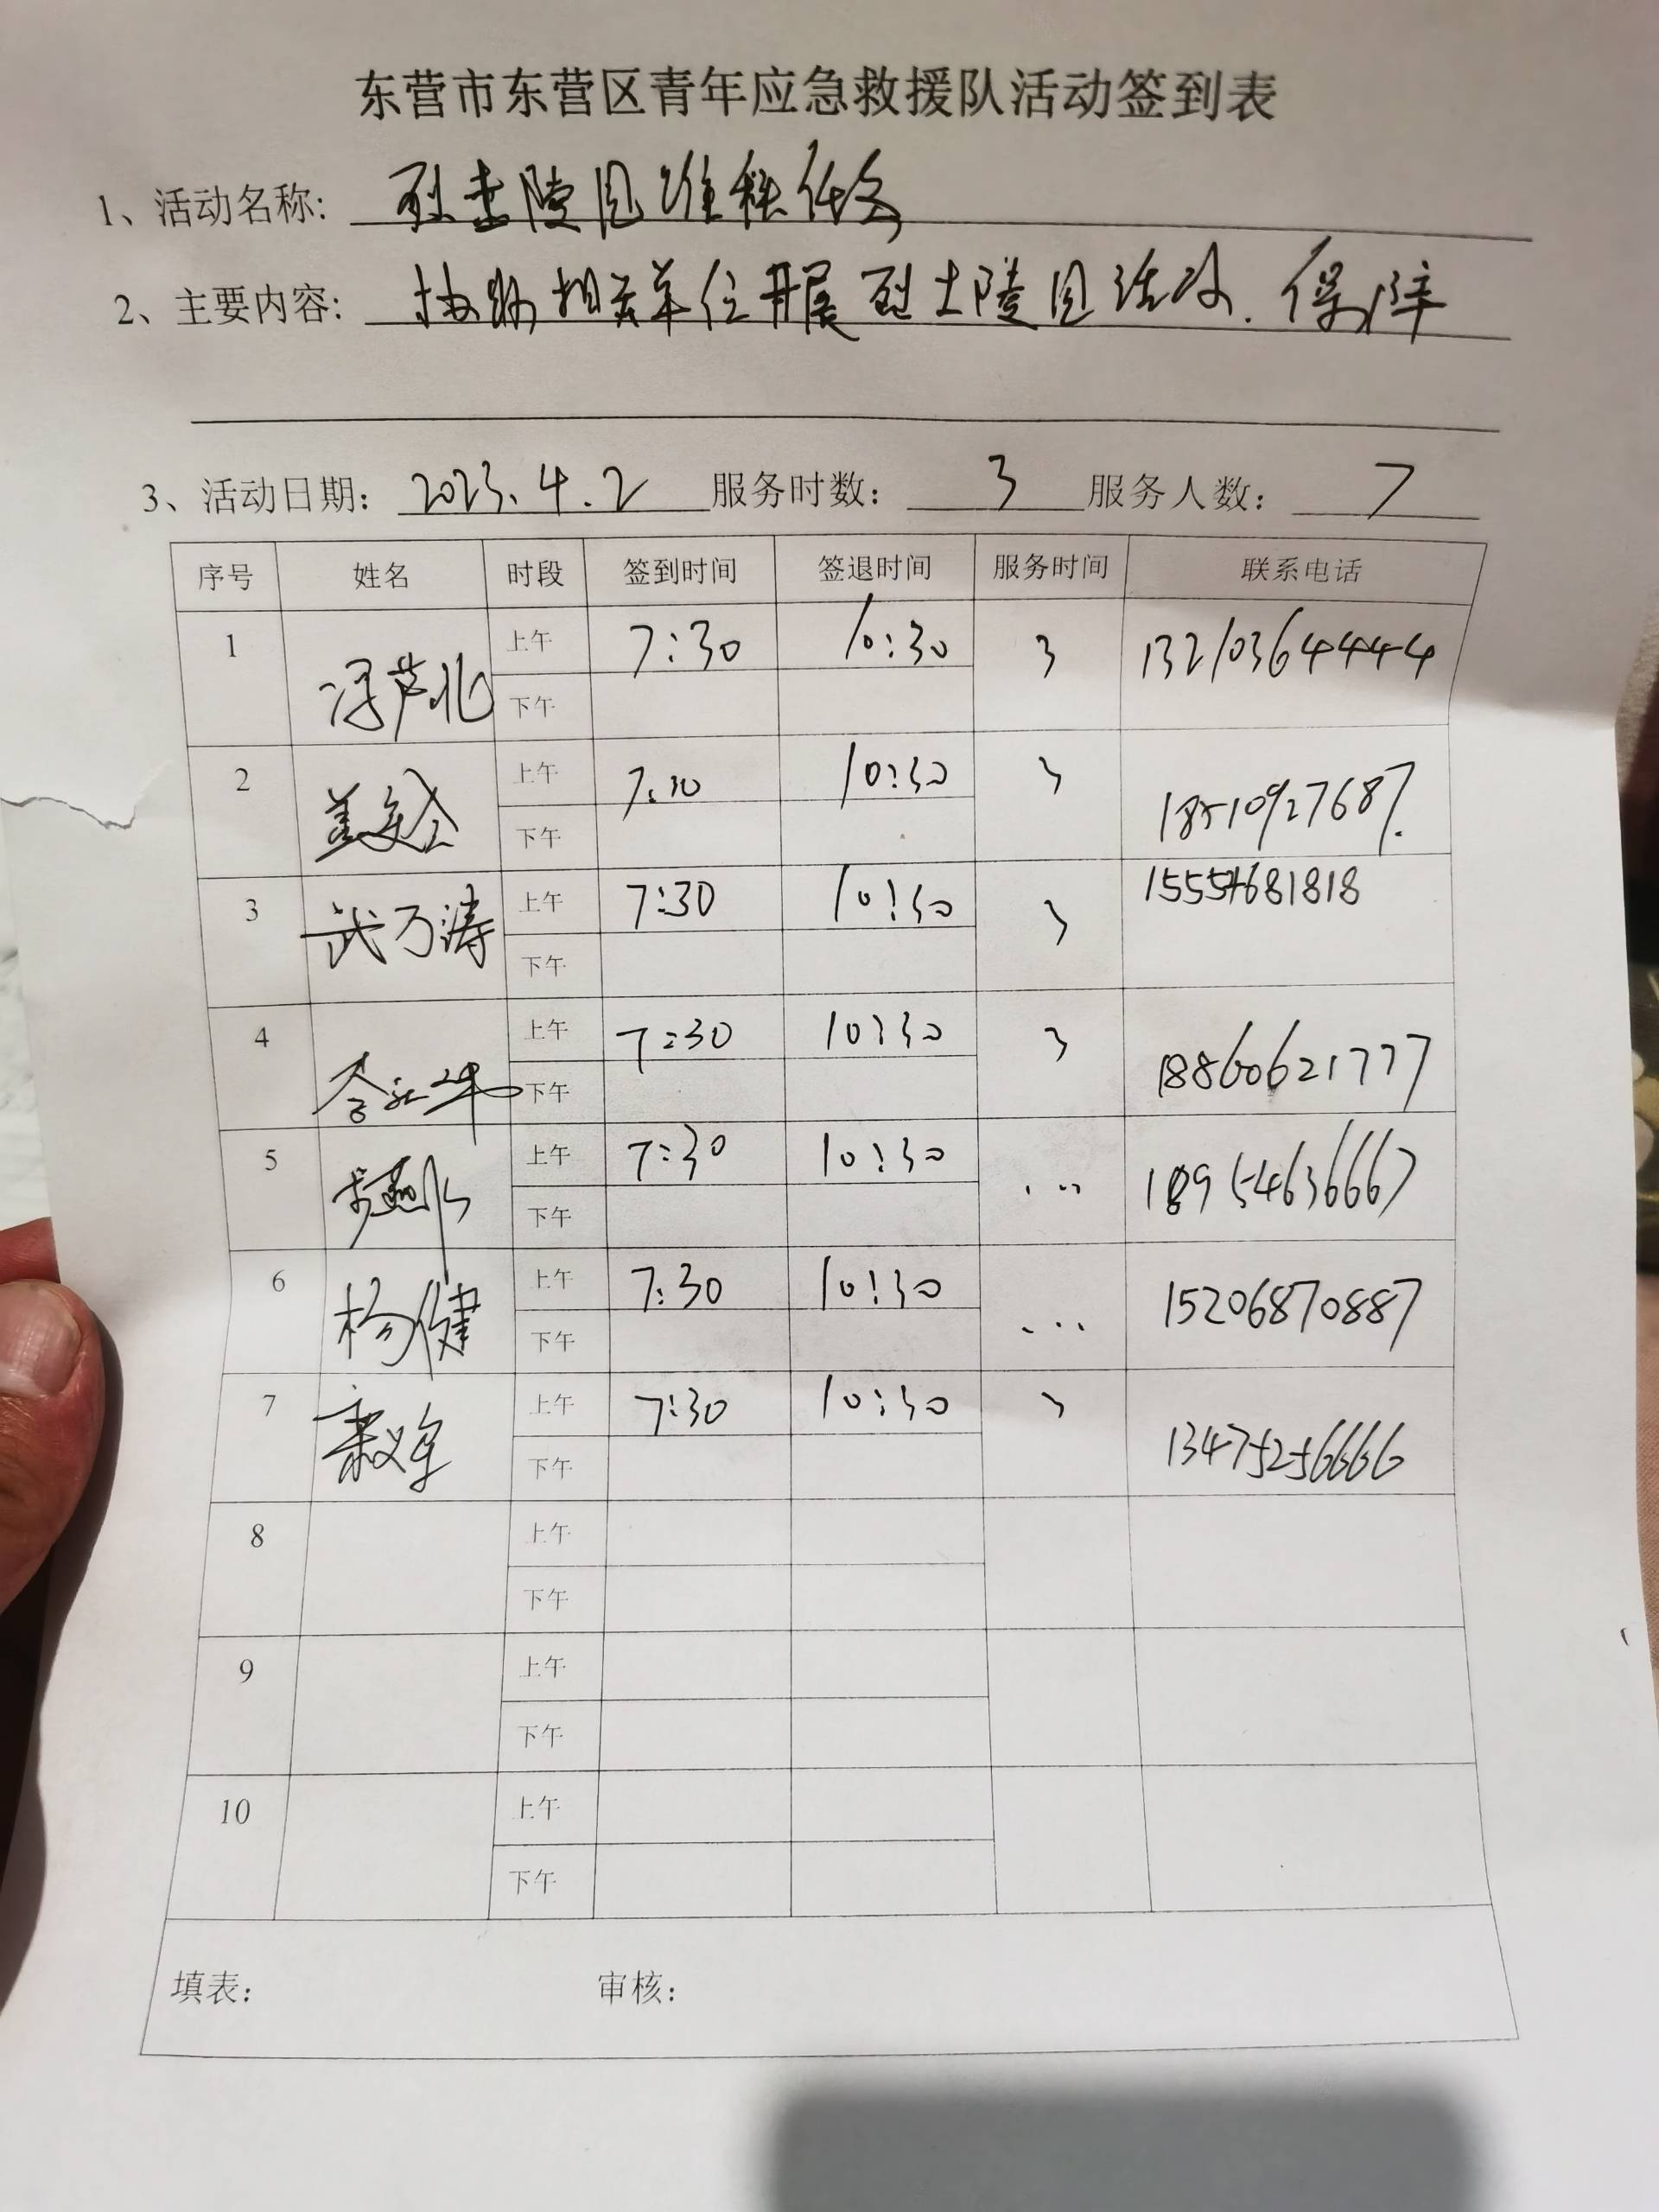 东营市东营区青年应急救援队活动签到表
1、活动名称: 烈士陵园维秩任务
2、主要内容: 协助相关单位开展烈士陵园活动.保障
3、活动日期: 2023.4.2 服务时数: 3 服务人数: 7
序号 姓名 时段 签到时间 签退时间 服务时间 联系电话
1 冯芦北 上午 7:30 10:30 3 13210364444
下午
2 上午 7:30 10:30 3 18510927687.
下午
3 武万涛 上午 7:30 10:30 3 681818
下午
4 上午 7:30 10:30 3 18860621777
下午
5 上午 7:30 10:30 ... 18954636667
下午
6 杨健 上午 7:30 10:30 ... 15206870887
下午
7 上午 7:30 10:30 3 13475256666
下午
8 上午
下午
9 上午
下午
10 上午
下午
填表: 审核: